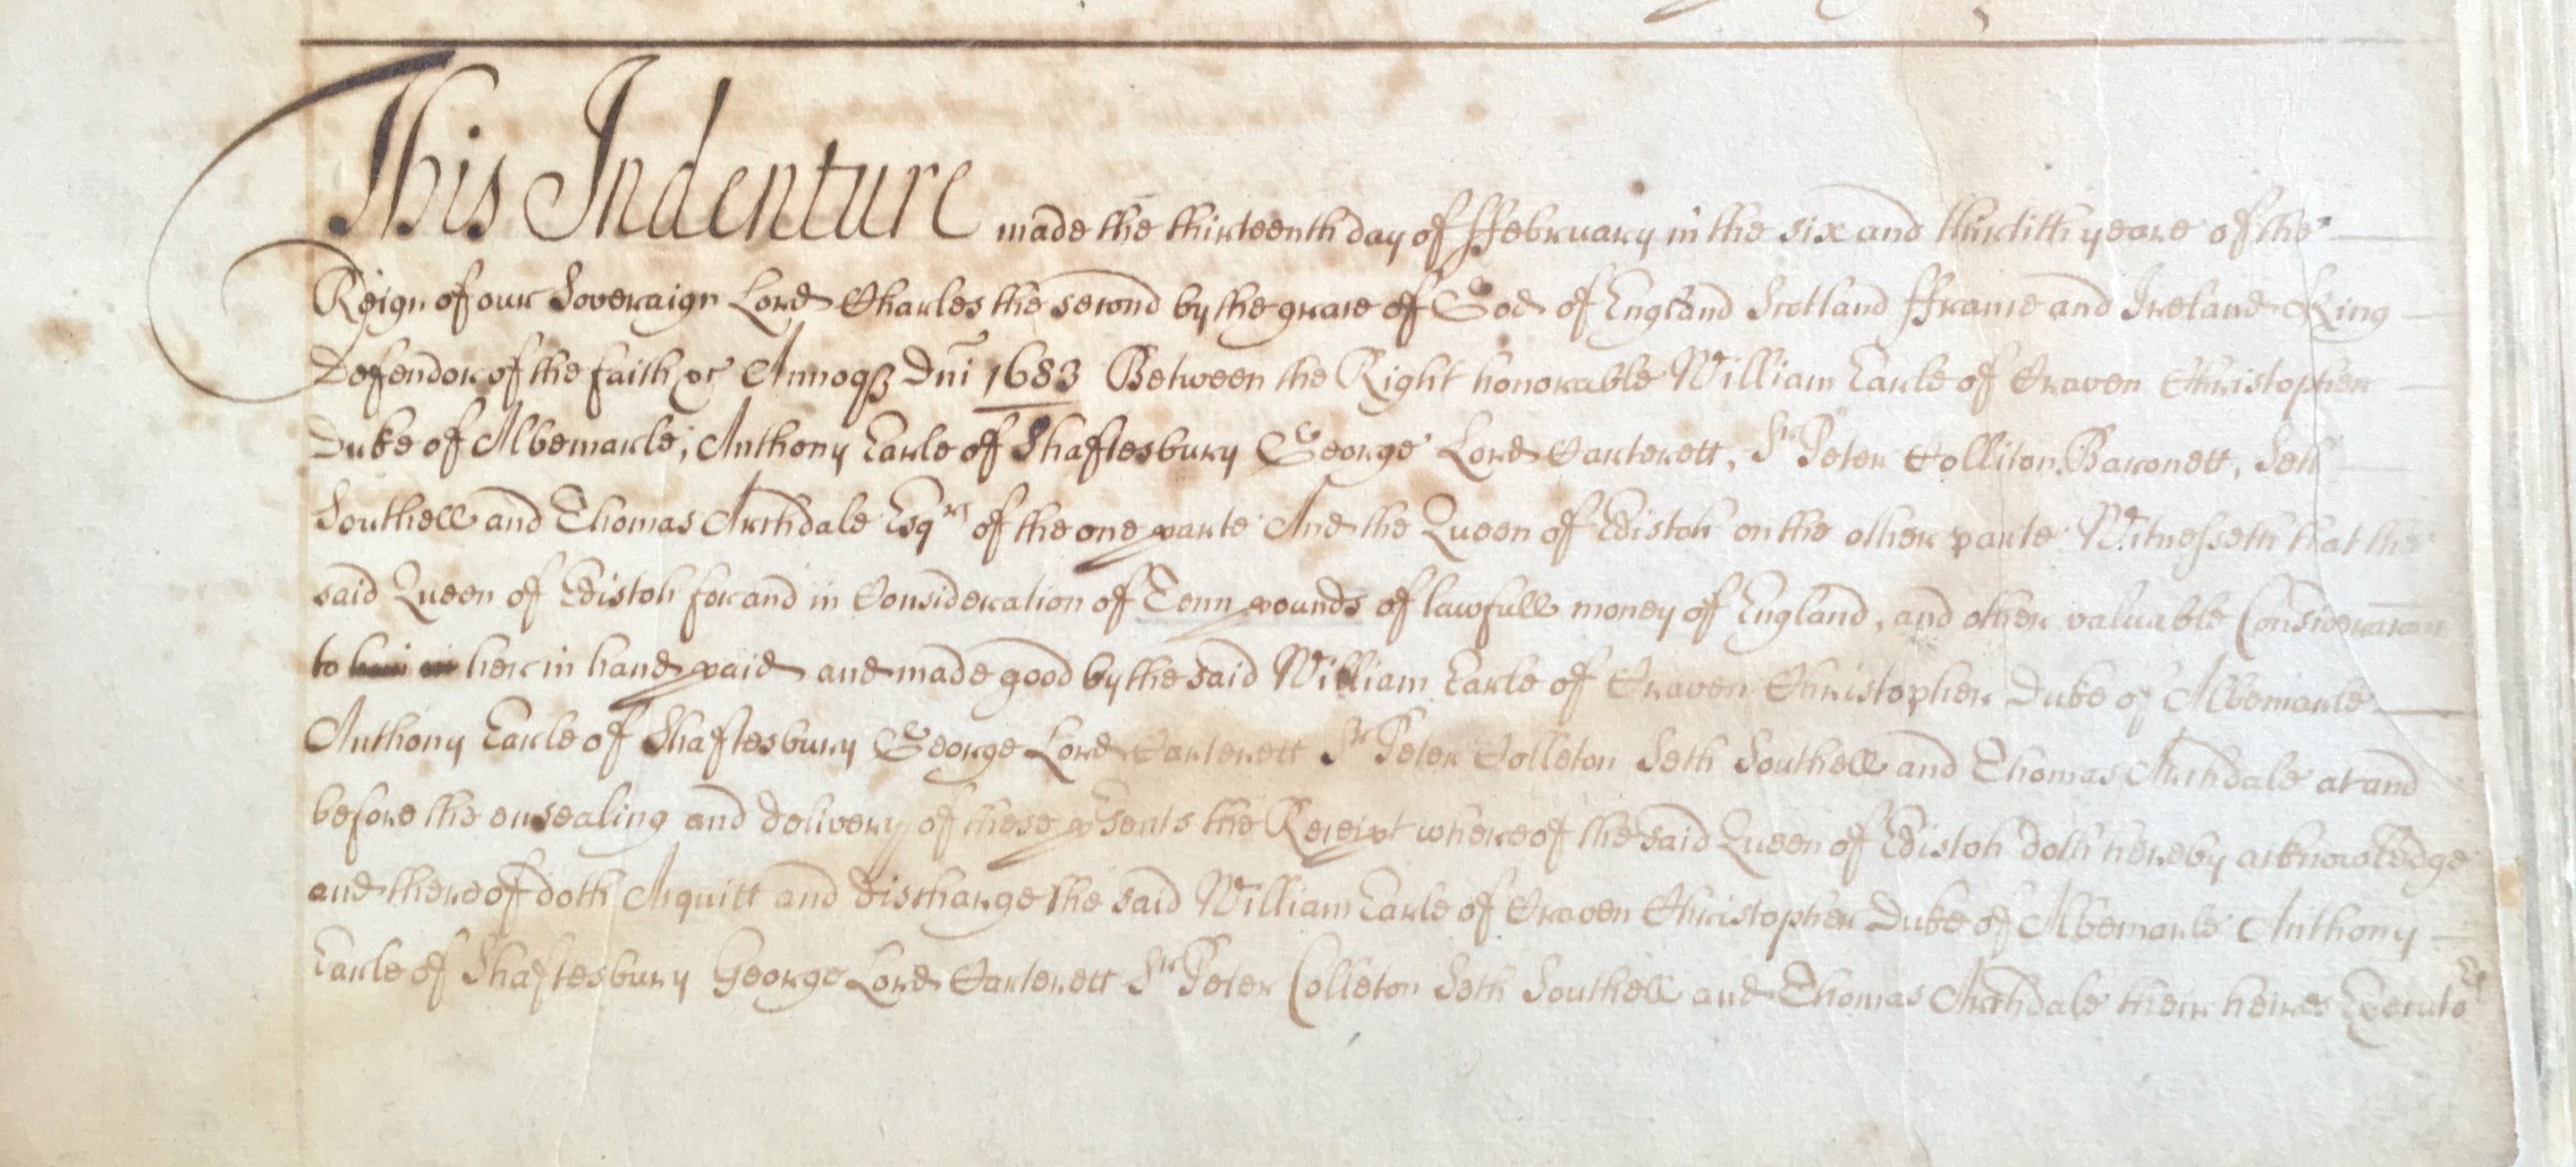 This Indenture made the thirteenth day of ffebruary in the six and thirtith yeare of the
Reign of our Soveraign Lord Charles the second by the grace of God of England Scotland ffrance and Ireland King
Defendor of the faith &c Annoq Dni 1683 Between the Right honorable William Earle of Craven Christopher
Duke of Albemarle, Anthony Earle of Shaftesbury George Lord Carterett, Sr Peter Colliton Baronett, Seth
Southell and Thomas Archdale Esqrs of the one parte And the Queen of Edistoh on the other parte Witnesseth that the
said Queen of Edistoh for and in Consideration of Tenn pounds of lawfull money of England, and other valuable
to her in hand paid and made good by the said William Earle of Craven Christopher Duke of Albemarle
Anthony Earle of Shaftesbury George Lord Carterett Sr Peter Colleton Seth Southell and Thomas Archdale at and
before the ensealing and delivery of these psents the Receipt whereof the said Queen of Edistoh doth hereby acknowledge
and thereof doth Acquitt and discharge the said William Earle of Craven Christopher Duke of Albemarle Anthony
Earle of Shaftesbury George Lord Carterett Sr Peter Colleton Seth Southell and Thomas Archdale their heires Executors